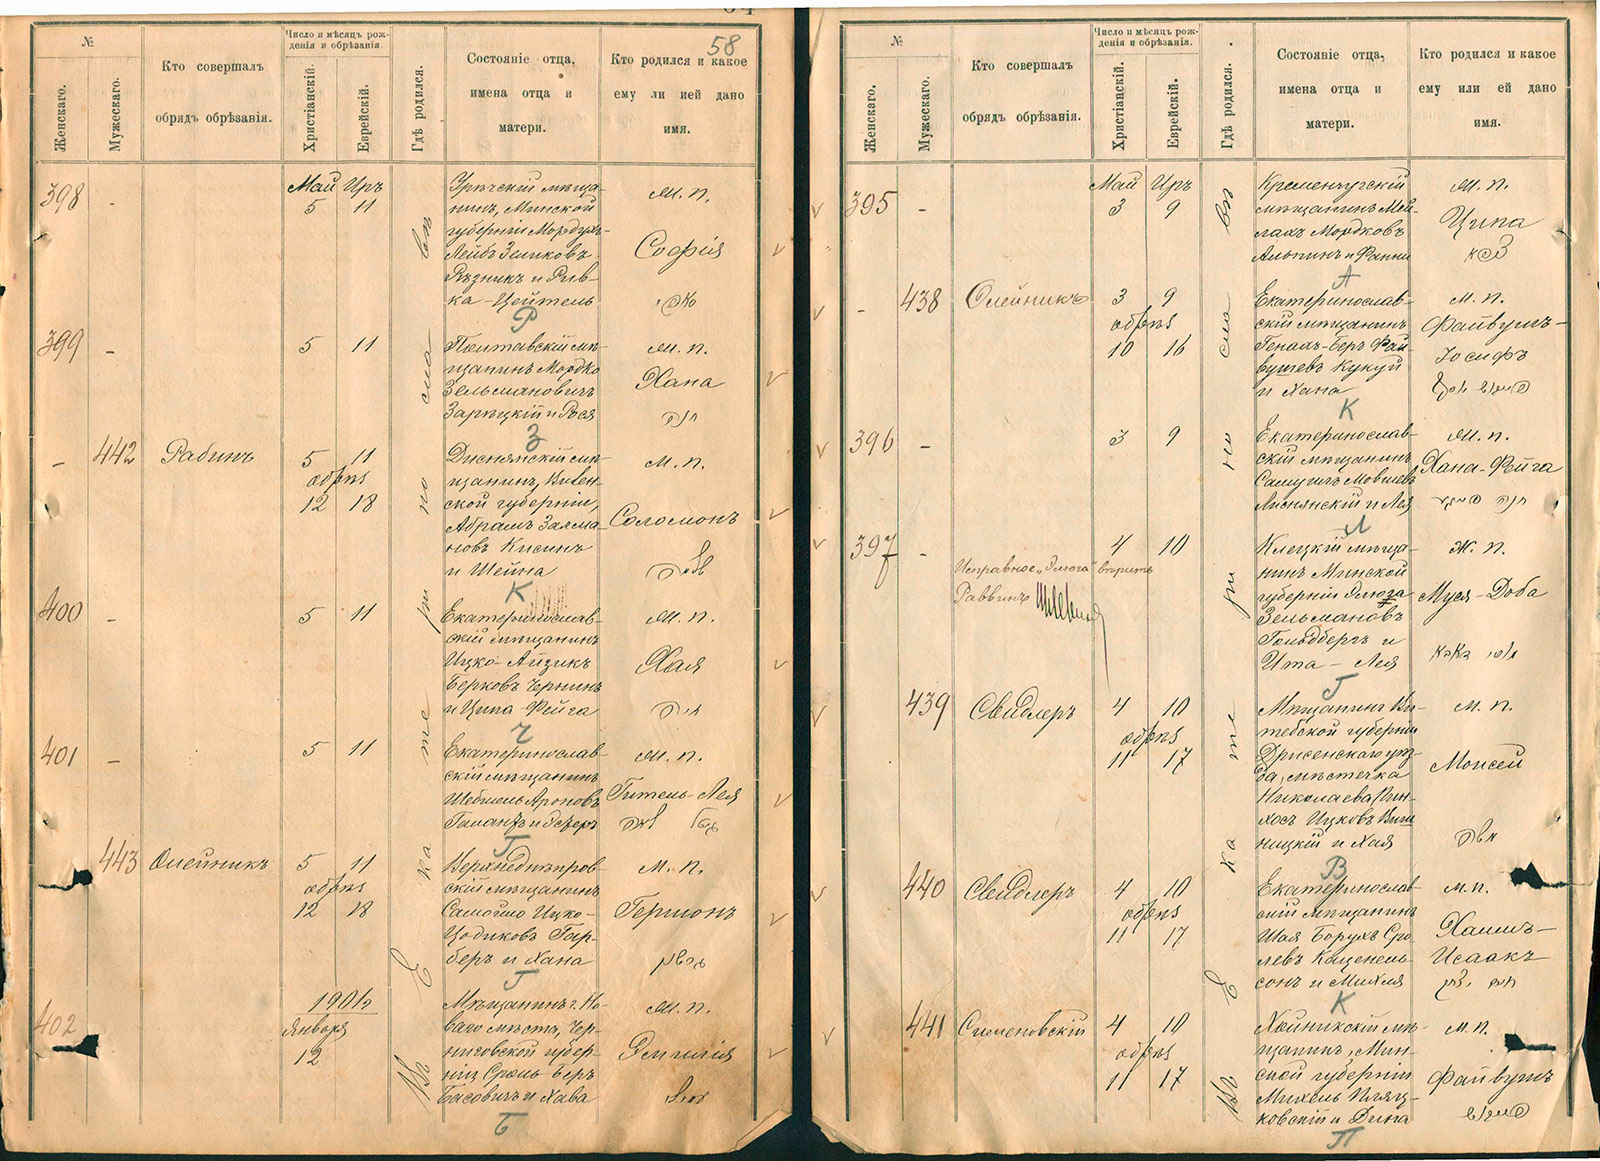 58
№
Женскаго.
Мужескаго.
Кто совершалъ
обрядъ обрѣзанія.
Число и мѣсяцъ рож-
денія и обрѣзанія.
Христіанскій.
Еврейскій.
Гдѣ родился.
Состояніе отца,
имена отца и
матери.
Кто родился и какое
ему ли ией дано
имя.
Въ Екатеринославъ
398
-
Май Иръ
5 11
нинъ, Минской
губерніи Мордухъ-
Лейбъ Зеликовъ
Рѣзникъ и Рив-
ка-Цейтель
Р
м. п.
Софія
399
-
5 11
Полтавскій мѣ-
щанинъ Мордко
Зельмановичъ
Зарѣцкій и Рася
З
м. п.
Хана
חנה
-
442
Рабинъ
5 11
обрѣз
12 18
Диснянскій мѣ-
щанинъ, Вилен-
ской губерніи,
Абрамъ Залма-
новъ Кисинъ
и Шейна
К
м. п.
Соломонъ
שלמה
400
-
5 11
Екатеринослав-
скій мѣщанинъ
Ицко-Айзикъ
Берковъ Чернинъ
и Ципа-Фейга
Ч
м. п.
Хая
חיה
401
-
5 11
Екатеринослав-
скій мѣщанинъ
Ароновъ
Г
м. п.
Гитель-Лея
443
Олейникъ
5 11
обрѣз
12 18
Верхнеднѣпров-
скій мѣщанинъ
Самойло Ицко-
Цодиковъ Гар-
беръ и Хана
Г
м. п.
Гершонъ
גרשון
402
1901г
Января
12
Мѣщанинъ г. Но-
ваго мѣста, Чер-
ниговской губер-
ніи Сроль Беръ
Басовичъ и Хава
Б
м. п.
Эмилія
№
Женскаго.
Мужескаго.
Кто совершалъ
обрядъ обрѣзанія.
Число и мѣсяцъ рож-
денія и обрѣзанія.
Христіанскій.
Еврейскій.
Гдѣ родился.
Состояніе отца,
имена отца и
матери.
Кто родился и какое
ему или ей дано
имя.
Въ Екатеринославъ
395
-
Май Иръ
3 9
Кременчугскій
мѣщанинъ Мей-
лахъ Мордковъ
Альпинъ и Фанни
А
м. п.
Ципа
-
438
Олейникъ
3 9
обрѣз
10 16
Екатеринослав-
скій мѣщанинъ
Генахъ-Беръ Фай-
вушевъ Кукуй
и Хана
К
м. п.
Файвушъ-
Іосифъ
396
-
3 9
Екатеринослав-
скій мѣщанинъ
Самуилъ Мовшевъ
Лиснянскій и Лея
Л
м. п.
Хана-Фейга
חנה פייגא
397
-
4 10
Исправное „Элюза“ вѣрить
Раввинъ
Клецкій мѣща-
нинъ Минской
губерніи Элюза
Зельмановъ
Гольдбергъ и
Ита-Лея
Г
ж. п.
Муся-Доба
439
Свидлеръ
4 10
обрѣз
11 17
Мѣщанинъ Ви-
тебской губерніи
Дрисенскаго уѣз-
да, мѣстечка
Николаева Пин-
хосъ Ицковъ Виш
ницкій и Хая
В
м. п.
Моисей
משה
440
Свидлеръ
4 10
обрѣз
11 17
Екатеринослав-
скій мѣщанинъ
Шая Борухъ Сро
левъ Каценель
сонъ и Михля
К
м. п.
Хаимъ-
Исаакъ
חיים יצחק
441
Сименовскій
4 10
обрѣз
11 17
Хойникскій мѣ-
щанинъ, Мин-
ской губерніи
Михель Пляц-
ковскій и Дина
П
м. п.
Файвушъ